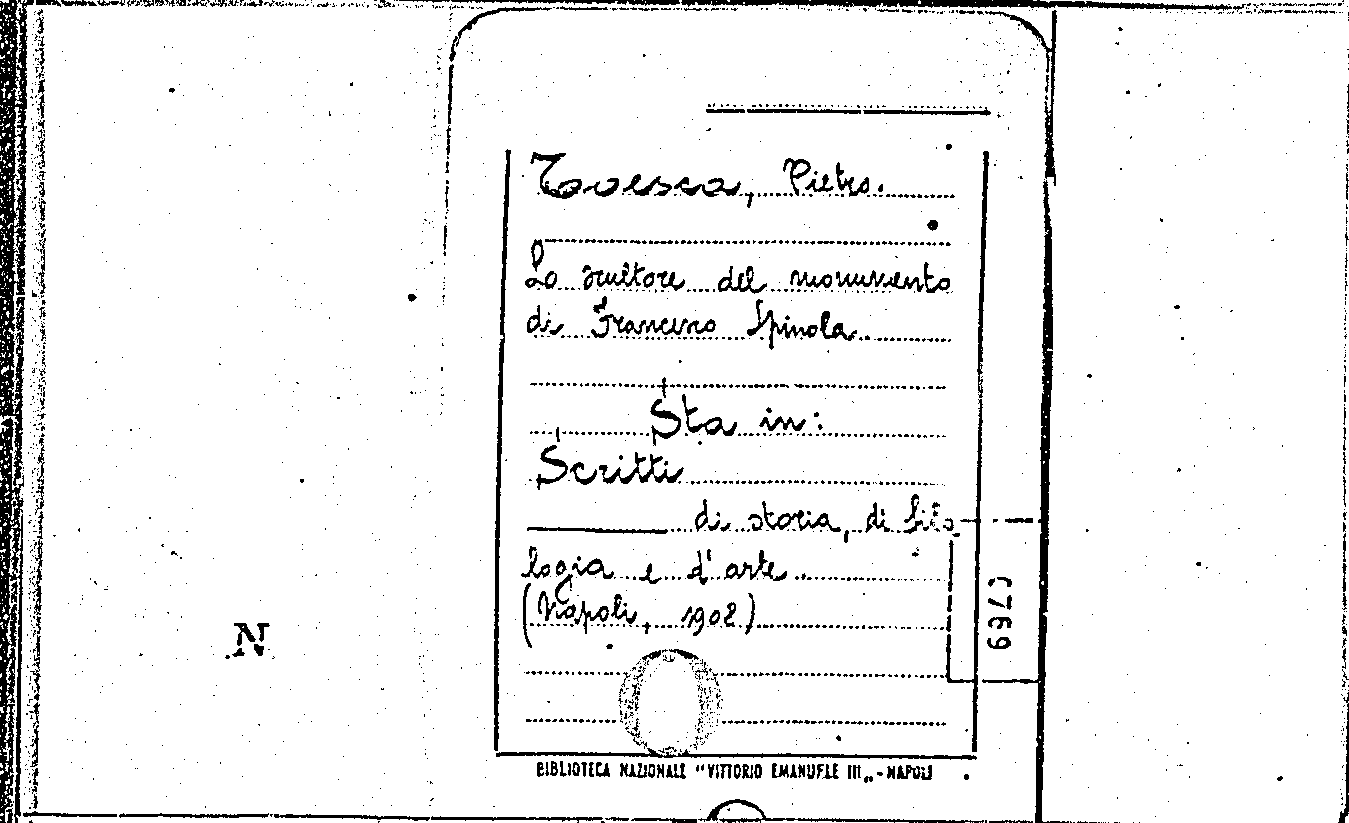 Toesca, Pietro.
Lo scultore del monumento
di Francesco Spinola.
Sta in:
Scritti
di storia, di filo
logia e d'arte.
(Napoli, 1908)
C769
N
BIBLIOTECA NAZIONALE "VITTORIO EMANUELE III„ - NAPOLI